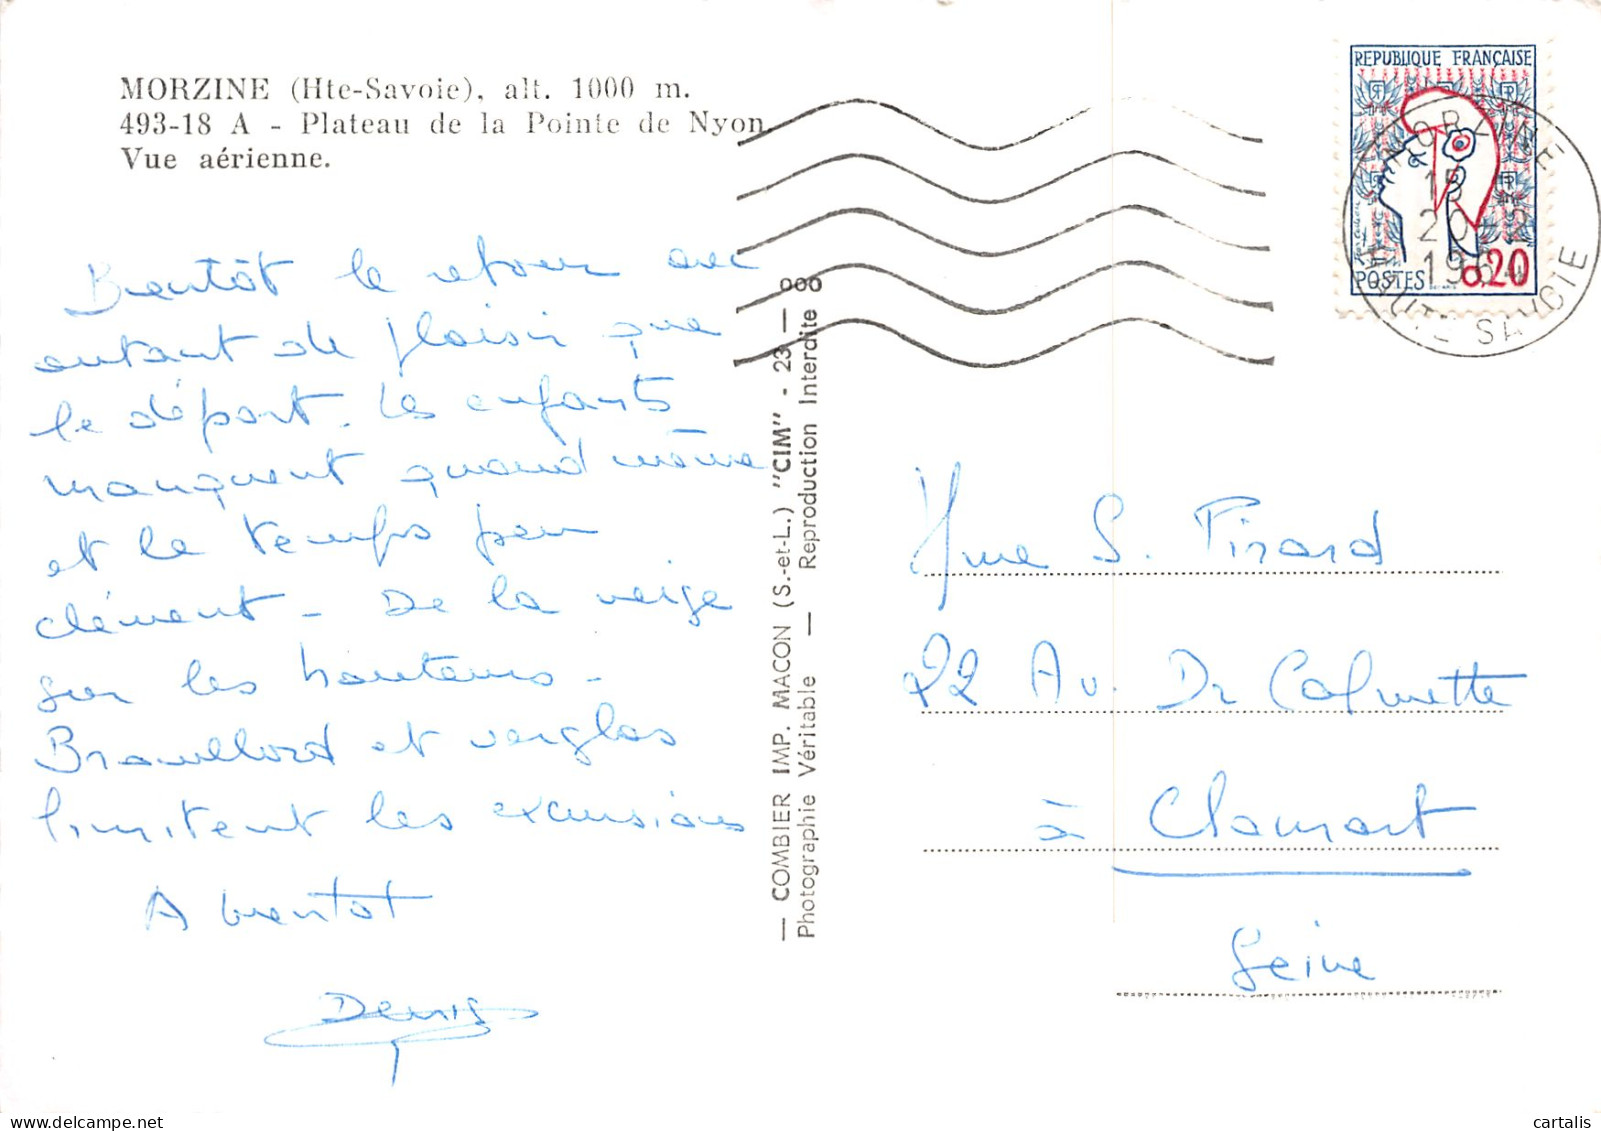 MORZINE (Hte-Savoie), alt. 1000 m.
493-18 A - Plateau de la Pointe de Nyon
Vue aérienne.
Bientôt le retour avec
autant de plaisir que
le départ. Les enfants
manquent quand même
et le temps peu
clément - De la neige
sur les hauteurs -
Brouillard et verglas
limitent les excursions
A bientôt
Denis
— COMBIER IMP. MACON (S.-et-L.) "CIM" - 23 — ooo
Photographie Véritable — Reproduction Interdite
REPUBLIQUE FRANÇAISE
POSTES 0,20
MORZINE
15
20-2
HAUTE SAVOIE
Mme S. Pinard
22 Av. Dr Calmette
à Clamart
Seine
cartalis - delcampe.net